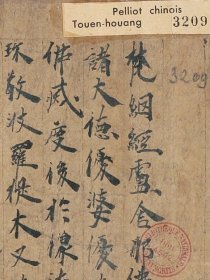 Pelliot chinois
Touen-houang 3209
3209
梵網經盧舍那
諸大德優婆優
佛滅度後於
珠敬波羅提木叉